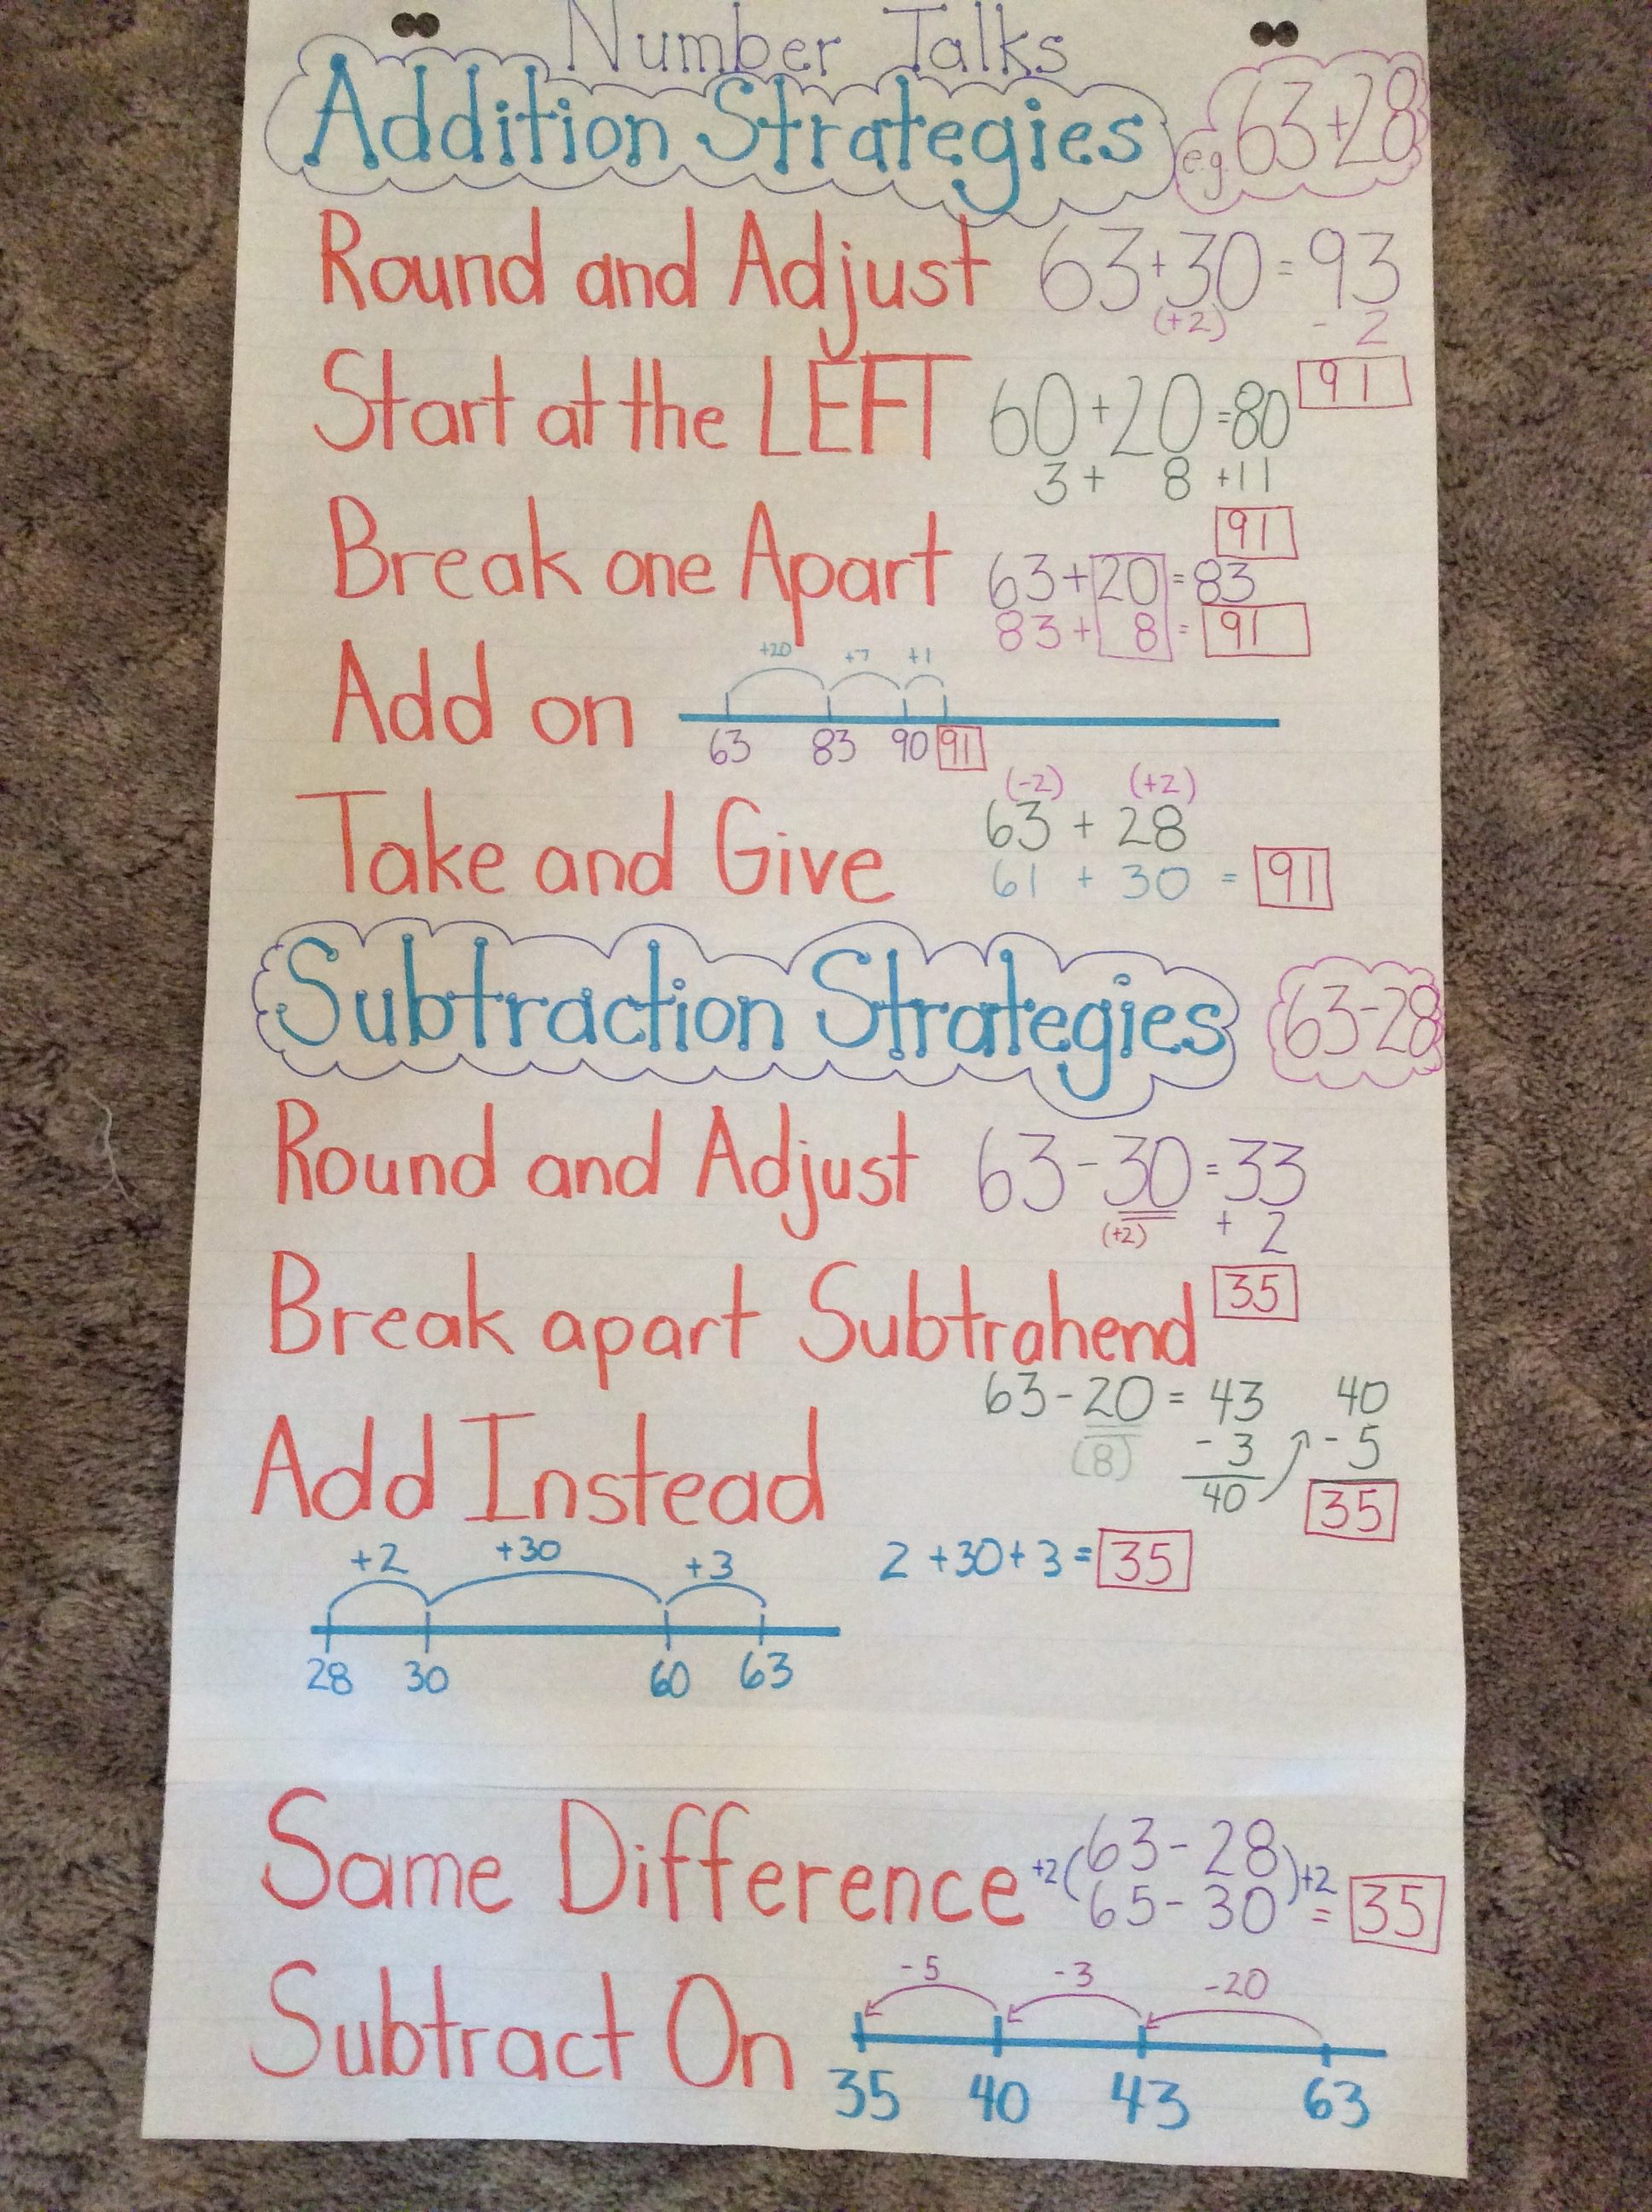 Number Talks
Addition Strategies e.g. 63+28
Round and Adjust 63+30=93
(+2) - 2
91
Start at the LEFT 60+20=80
3+ 8 +11
91
Break one Apart 63+20=83
83+ 8= 91
+20 +7 +1
Add on
63 83 90 91
(-2) (+2)
63 + 28
Take and Give 61 + 30 = 91
Subtraction Strategies 63-28
Round and Adjust 63-30=33
(+2) + 2
35
Break apart Subtrahend
63-20= 43 40
(8) - 3 - 5
40 35
Add Instead
+2 +30 +3 2+30+3= 35
28 30 60 63
Same Difference +2 (63-28) +2
65-30 = 35
-5 -3 -20
Subtract On
35 40 43 63